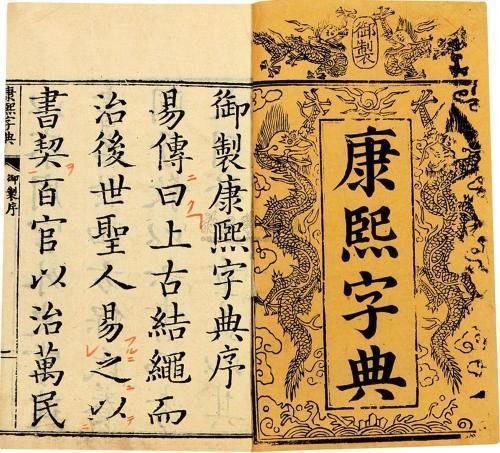 御製
康熙字典
御製康熙字典序
易傳曰上古結繩而
治後世聖人易之以
書契百官以治萬民
康熙字典
御製序
一